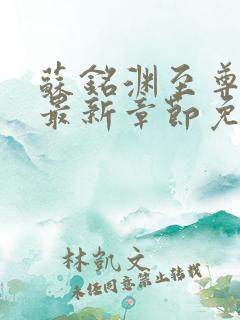 蘇銘渊至尊
最新章節免
林凱文
未经同意禁止转载